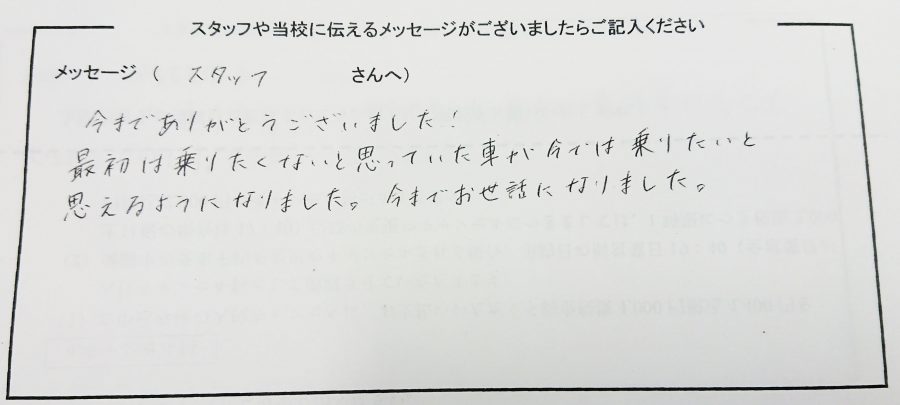 スタッフや当校に伝えるメッセージがございましたらご記入ください
メッセージ（ スタッフ さんへ）
今までありがとうございました！
最初は乗りたくないと思っていた車が今では乗りたいと
思えるようになりました。今までお世話になりました。